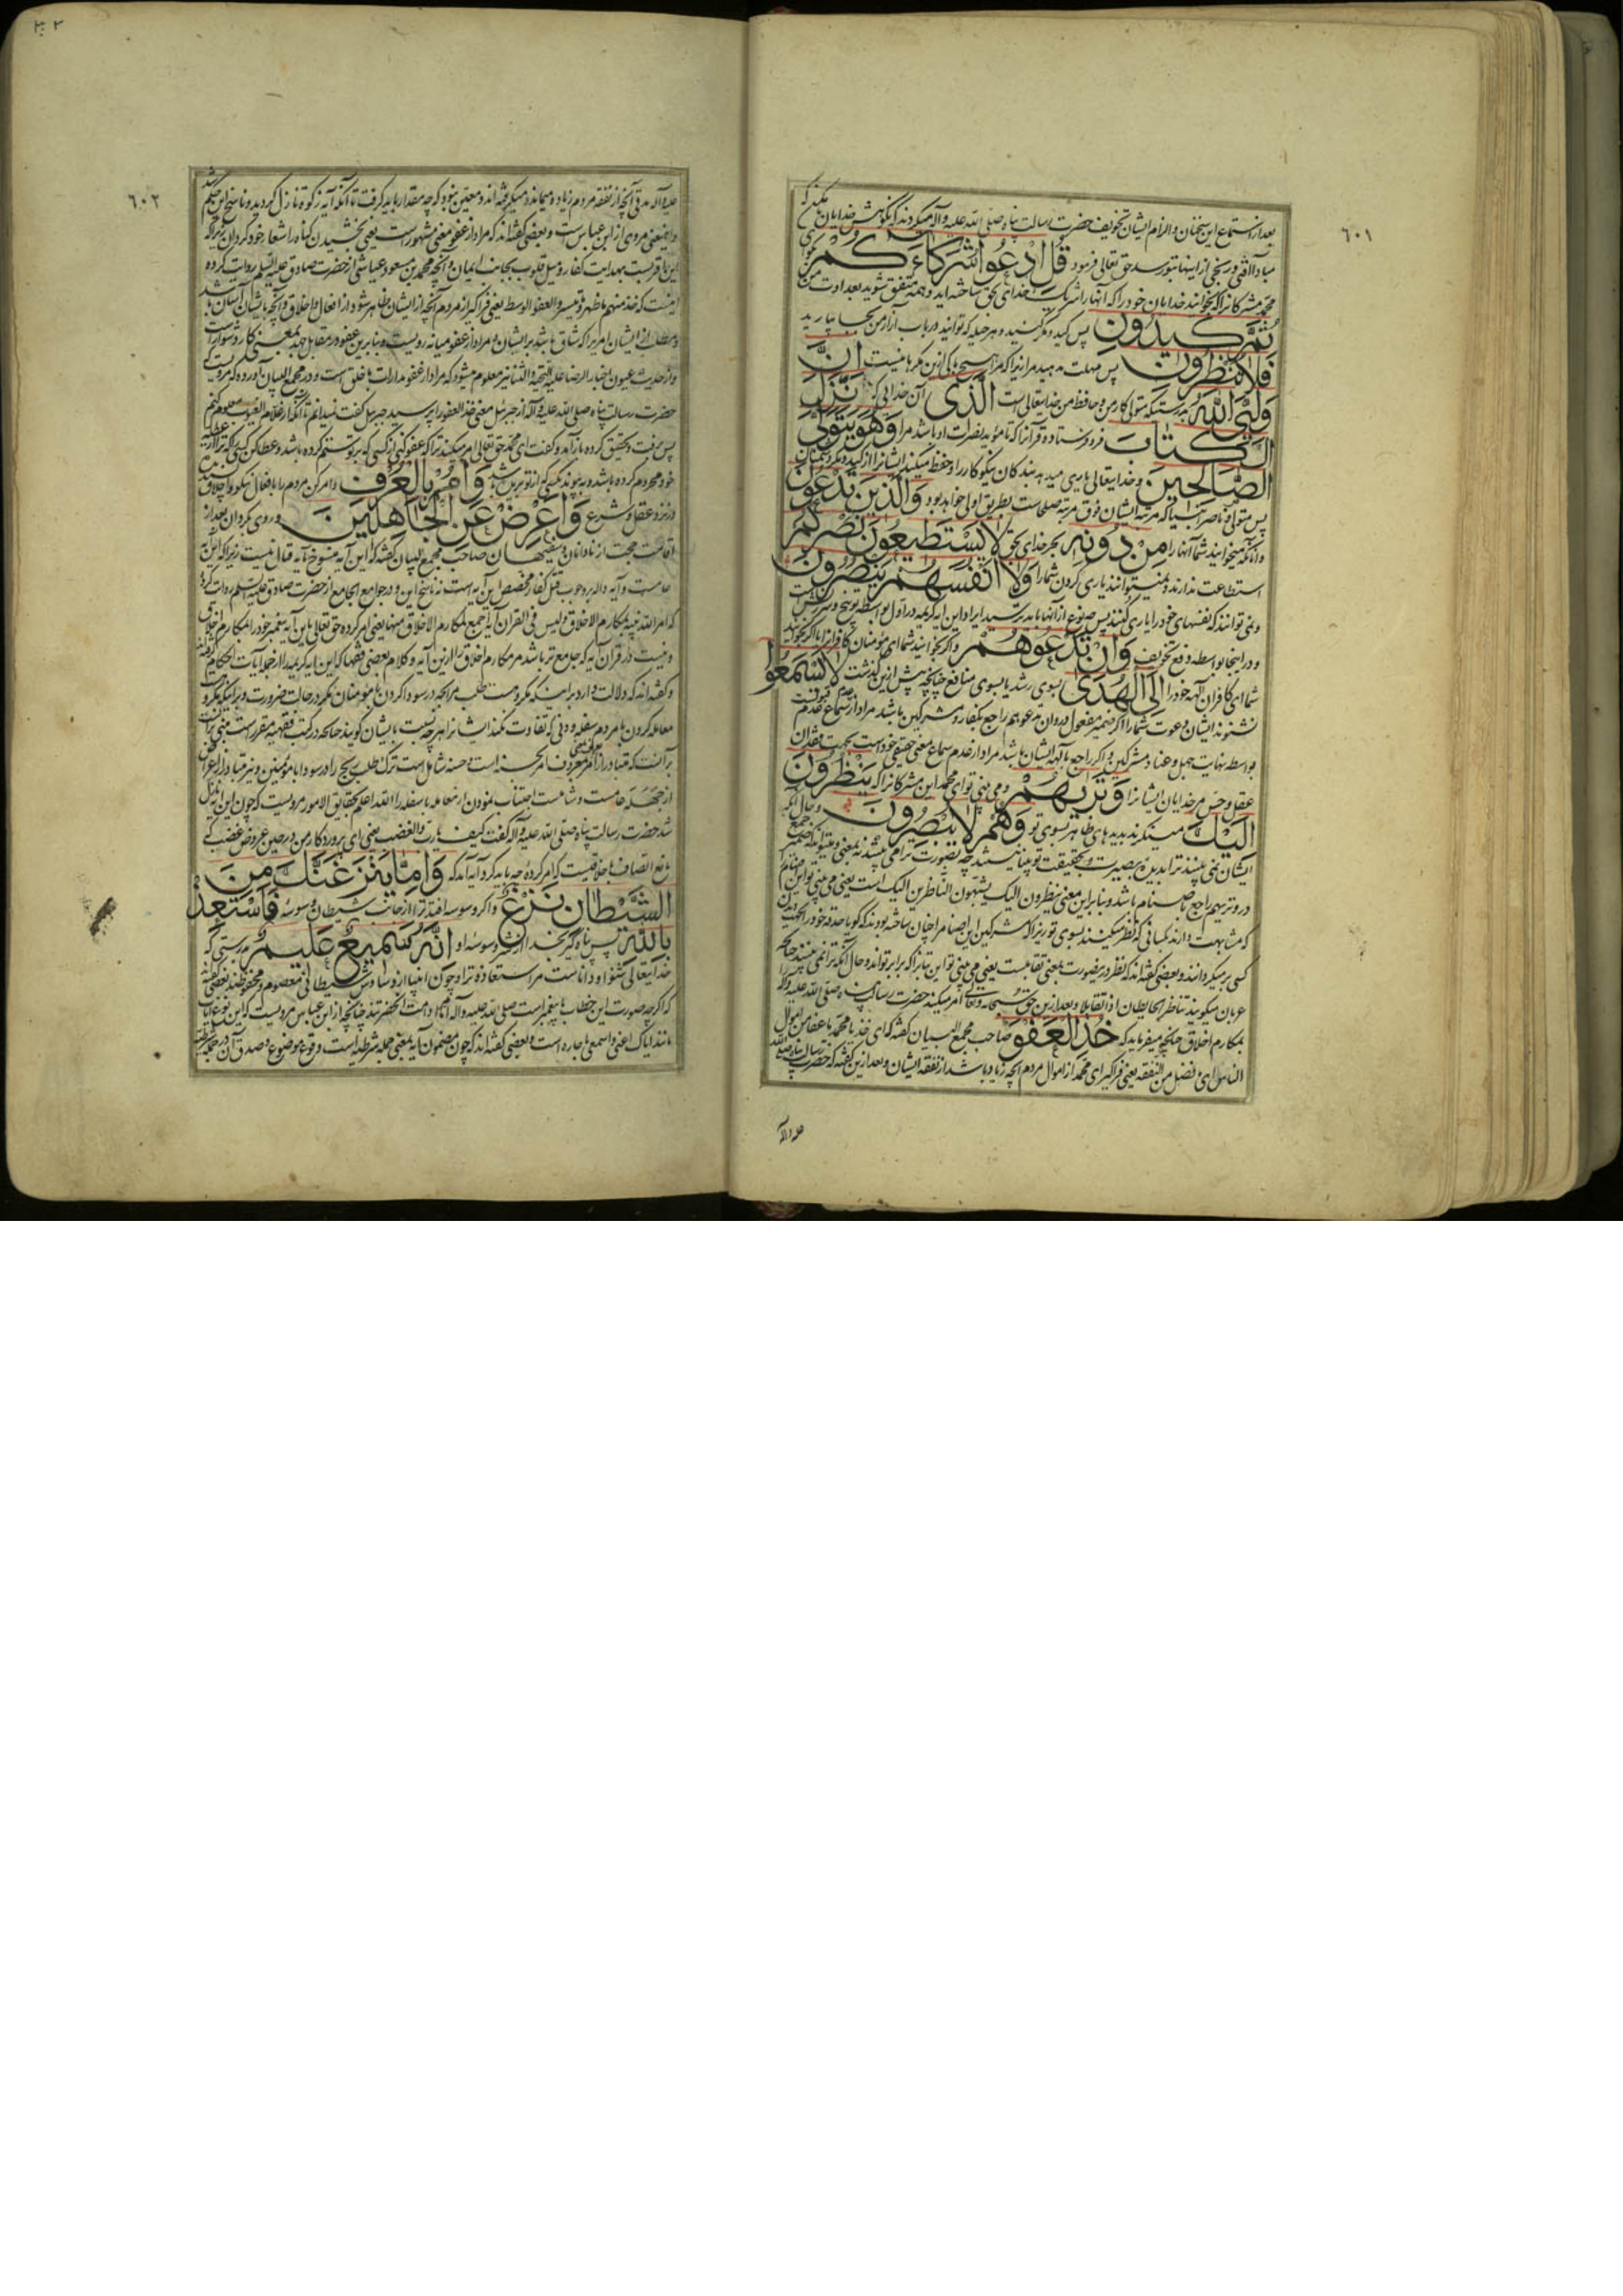 ٦٠١
بعد از استماع این سخنان و الزام ایشان تخویف حضرت رسالت پناه صلی الله علیه و آله میکردند که نکوهش خدایان مکن که
مبادا آفتی و رنجی از اینها بتو رسد حق تعالی فرمود قُلِ ادْعُوا شُرَكَاءَكُمْ بگو ای
محمد مشرکانرا که بخوانید خدایان خود را که آنها را شریک خدای بحق ساخته اید و همه متفق شوید بعداوت من
ثُمَّ كِيدُونِ پس کید و مکر کنید و هر حیله که توانید در باب آزار من بجا بیارید
فَلَا تُنْظِرُونِ پس مهلت مدهید مرا زیرا که مرا هیچ باکی ازین مکرها نیست إِنَّ
وَلِيِّيَ اللَّهُ بدرستیکه متولی کار من و حافظ من خدایتعالی است الَّذِي آن خدایی که نَزَّلَ
الْكِتَابَ فرو فرستاده قرآنرا که تا مؤید نصرت او باشد مرا وَهُوَ يَتَوَلَّى
الصَّالِحِينَ و خدایتعالی یاری میدهد بندکان نیکوکار را و حفظ میکند ایشانرا از کید و مکر دشمنان
پس متولی و ناصر انبیا که مرتبه ایشان فوق مرتبه صلحاست بطریق اولی خواهد بود وَالَّذِينَ تَدْعُونَ
و آنانکه میخوانید شما آنها را مِنْ دُونِهِ بجز خدای بحق لَا يَسْتَطِيعُونَ نَصْرَكُمْ
استطاعت ندارند و نمیتوانند یاری کردن شما را وَلَا أَنْفُسَهُمْ يَنْصُرُونَ
و نمی توانند که نفسهای خود را یاری کنند پس چه نوع از آنها باید ترسید ایراد این آیه کریمه در اول بواسطه توبیخ و سرزنش است
و در اینجا بواسطه دفع تخویف وَإِنْ تَدْعُوهُمْ و اگر بخوانید شما ای مؤمنان کافرانرا یا اگر بخوانید
شما ای کافران آلهه خود را إِلَى الْهُدَى بسوی رشد یا بسوی منافع چنانچه پیش ازین گذشت لَا يَسْمَعُوا
نشنوند ایشان دعوت شما را اگر ضمیر مفعول در وان تدعوهم راجع بکفار و مشرکین باشد مراد از سماع عدم قبولست
بواسطه نهایت جهل و عناد مشرکین و اگر راجع بآلهه ایشان باشد مراد از عدم سماع معنی حقیقی خود است بجهت فقدان
عقل و حس مر خدایان ایشانرا وَتَرَاهُمْ و می بینی تو ای محمد این مشرکانرا که يَنْظُرُونَ
إِلَيْكَ مینگرند بدیدهای ظاهر بسوی تو وَهُمْ لَا يُبْصِرُونَ و حال آنکه
ایشان نمی بینند ترا بدیده بصیرت و بحقیقت تو بینا نیستند چه بصورت ترا می بینند نه بمعنی و میتواند که ضمیر جمع
در و تریهم راجع باصنام باشد و بنا براین معنی ینظرون الیک یشبهون الناظرین الیک است یعنی می بینی تو این اصنام را
که مشابهت دارند بکسانی که نظر میکنند بسوی تو زیرا که مشرکین این اصنام را چنان ساخته بودند که گویا حدقه خود را بجهت دیدن
کسی بر میکردانند و بعضی گفته اند که نظر درینصورت بمعنی تقابلست یعنی می بینی تو این بتانرا که برابر تواند و حال آنکه ترا نمی بینند چنانکه
عربان میگویند تناظر الحایطان اذا تقابلا و بعد ازین حق سبحانه و تعالی امر میکند حضرت رسالت پناه صلی الله علیه و آله
بمکارم اخلاق چنانچه میفرماید که خُذِ الْعَفْوَ صاحب مجمع البیان گفته که ای خذ یا محمد ما عفا من اموال
الناس ای فضل من النفقه یعنی فراگیر ای محمد از اموال مردم آنچه زیاد باشد از نفقه ایشان و بعد ازین گفته که حضرت رسالت پناه صلی الله
علیه و آله
٦٠٢
علیه و آله مدتی آنچه از نفقه مردم زیاده میماند میگرفته اند و معین نبود که چه مقدار باید گرفت تا آنکه آیه زکوة نازل گردید و ناسخ این حکم شد
و اینمعنی مروی از ابن عباس است و بعضی گفته اند که مراد از عفو معنی مشهور است یعنی بخشیدن گناه را شعار خود گردان زیرا که
این اقربست بهدایت کفار و میل قلوب بجانب ایمان و آنچه محمد بن مسعود عیاشی از حضرت صادق علیه السلام روایت کرده
اینست که خذ منهم ما ظهر و تیسر و العفو الوسط یعنی فراگیر از مردم آنچه از ایشان ظاهر شود از افعال و اخلاق و آنچه بایشان آسان باشد
و مطلب از ایشان امریرا که شاق باشد بر ایشان و مراد از عفو میانه رویست و بنابرین عفو در مقابل جهد بمعنی کار دشوار است
و از حدیث عیون اخبار الرضا علیه التحیة و الثنا نیز معلوم میشود که مراد از عفو مدارات با خلق است و در مجمع البیان آورده که مرویست که
حضرت رسالت پناه صلی الله علیه و آله از جبرئیل معنی خذ العفو را پرسید جبرئیل گفت نمیدانم تا آنکه از علام الغیوب معلوم کنم
پس برفت و تحقیق کرده باز آمد و گفت ای محمد حق تعالی امر میکند ترا که عفو کنی از کسی که بر تو ستم کرده باشد و عطا کن کسی را که ترا از عطیه
خود محروم کرده باشد و به پیوند بکسی که از تو بریده باشد وَأْمُرْ بِالْعُرْفِ و امر کن مردم را بافعال نیکو و اخلاق پسندیده
در نزد عقل و شرع وَأَعْرِضْ عَنِ الْجَاهِلِينَ و روی بگردان بعد از
اقامت حجت از نادانان و سفیهان صاحب مجمع البیان گفته که این آیه منسوخ بآیه قتال نیست زیرا که این آیه
عامست و آیه داله بر وجوب قتل کفار مخصص این آیه است نه ناسخ این و در جوامع الجامع از حضرت صادق علیه السلام روایت کرده
که امر الله نبیه بمکارم الاخلاق و لیس فی القرآن آیة اجمع لمکارم الاخلاق منها یعنی امر کرده حق تعالی باین آیه پیغمبر خود را بمکارم اخلاق
و نیست در قرآن آیه که جامع تر باشد مر مکارم اخلاق را ازین آیه و کلام بعضی فقها که این آیه کریمه را از جمله آیات احکام گرفته
و گفته اند که دلالت دارد بر اینکه مکروهست طلب مرابحه در سودا کردن با مؤمنان مگر در حالت ضرورت و بر اینکه مکروهست
معامله کردن با مردم سفله و دنی که تفاوت نکند ایشانرا هر چه نسبت بایشان گویند چنانکه در کتب فقهیه مقرر است مبنی
بر آنست که متبادر از امر بمعروف امر بحسنه است و حسنه شامل است ترک طلب ربح را در سودا با مؤمنین و نیز متبادر از اعراض
از جهله عامست و شاملست اجتناب نمودن از معامله با سفله را و الله اعلم بحقایق الامور مرویست که چون این آیه نازل
شد حضرت رسالت پناه صلی الله علیه و آله گفت کیف یا رب و الغضب یعنی ای پروردگار من در حین عروض غضب که
مانع اتصاف باخلاقیست که امر کرده چه باید کرد آیه آمد که وَإِمَّا يَنْزَغَنَّكَ مِنَ
الشَّيْطَانِ نَزْغٌ و اگر وسوسه افتد ترا از جانب شیطان وسوسه فَاسْتَعِذْ
بِاللَّهِ پس پناه گیر بخدا از شر وسوسه او إِنَّهُ سَمِيعٌ عَلِيمٌ بدرستی که
خدایتعالی شنوا و داناست مر استعاذه ترا و چون انبیا از وساوس شیطانی معصوم و محفوظند بعضی گفته
که اگر چه صورت این خطاب با پیغمبر است صلی الله علیه و آله اما مراد امت آنحضرتند چنانچه از ابن عباس مرویست که این نوع آیات
مانند ایاک اعنی و اسمعی یا جاره است و بعضی گفته اند که چون مضمون آیه بمعنی جمله شرطیه است و وقوع موضوع و صدق آن در جمله شرطیه